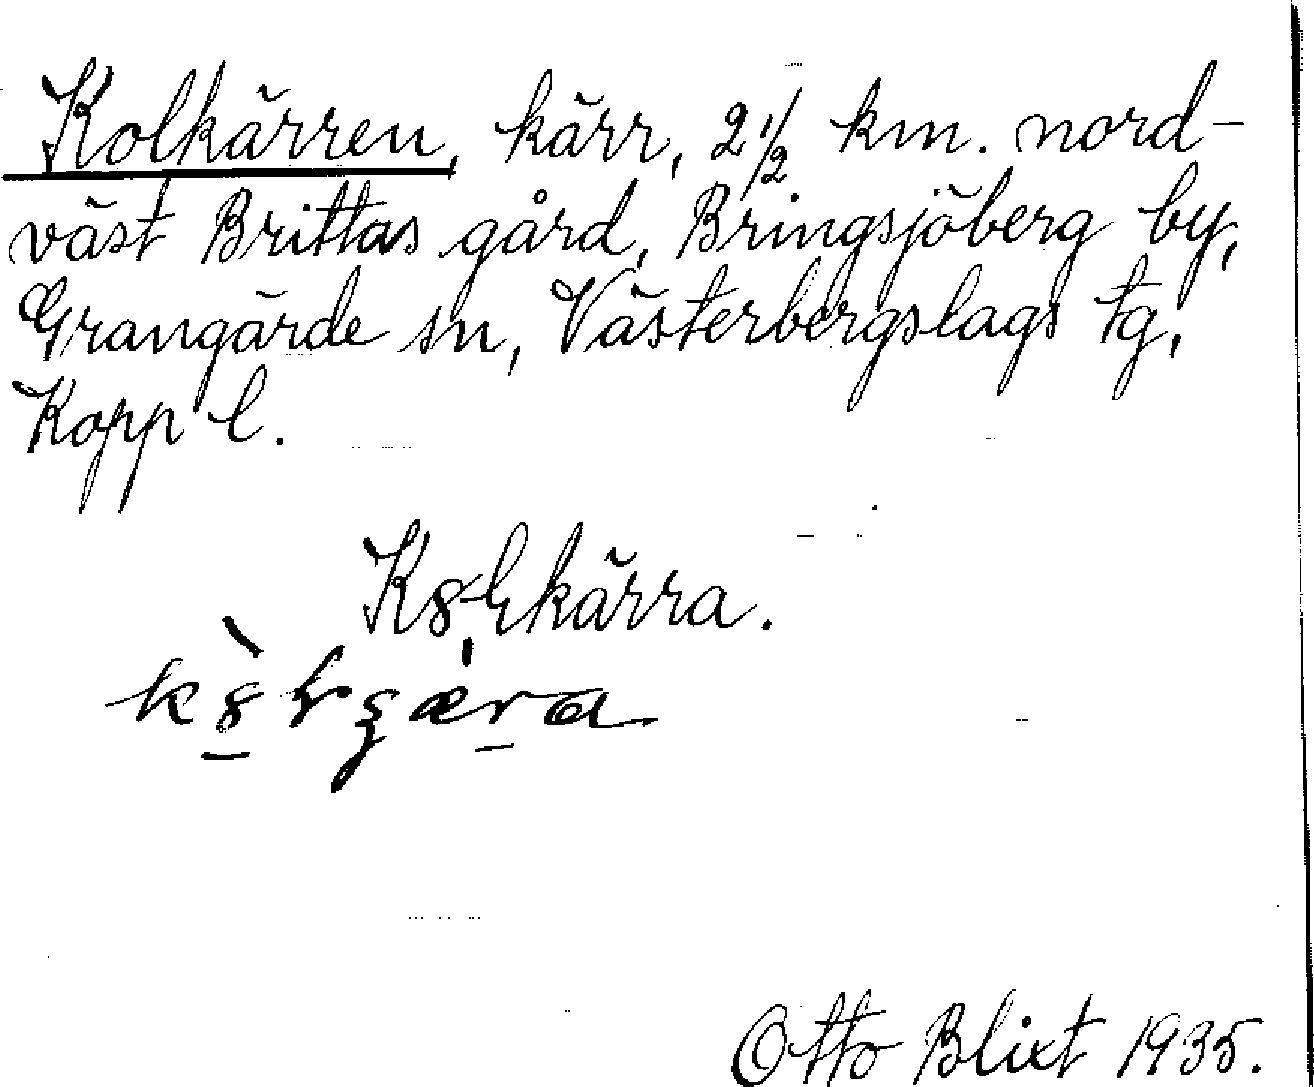 Kolkärren, kärr, 2 1/2 km. nord-
väst Brittas gård, Bringsjöberg by,
Grangärde sn, Västerbergslags tg,
Kopp l.
Otto Blixt 1935.